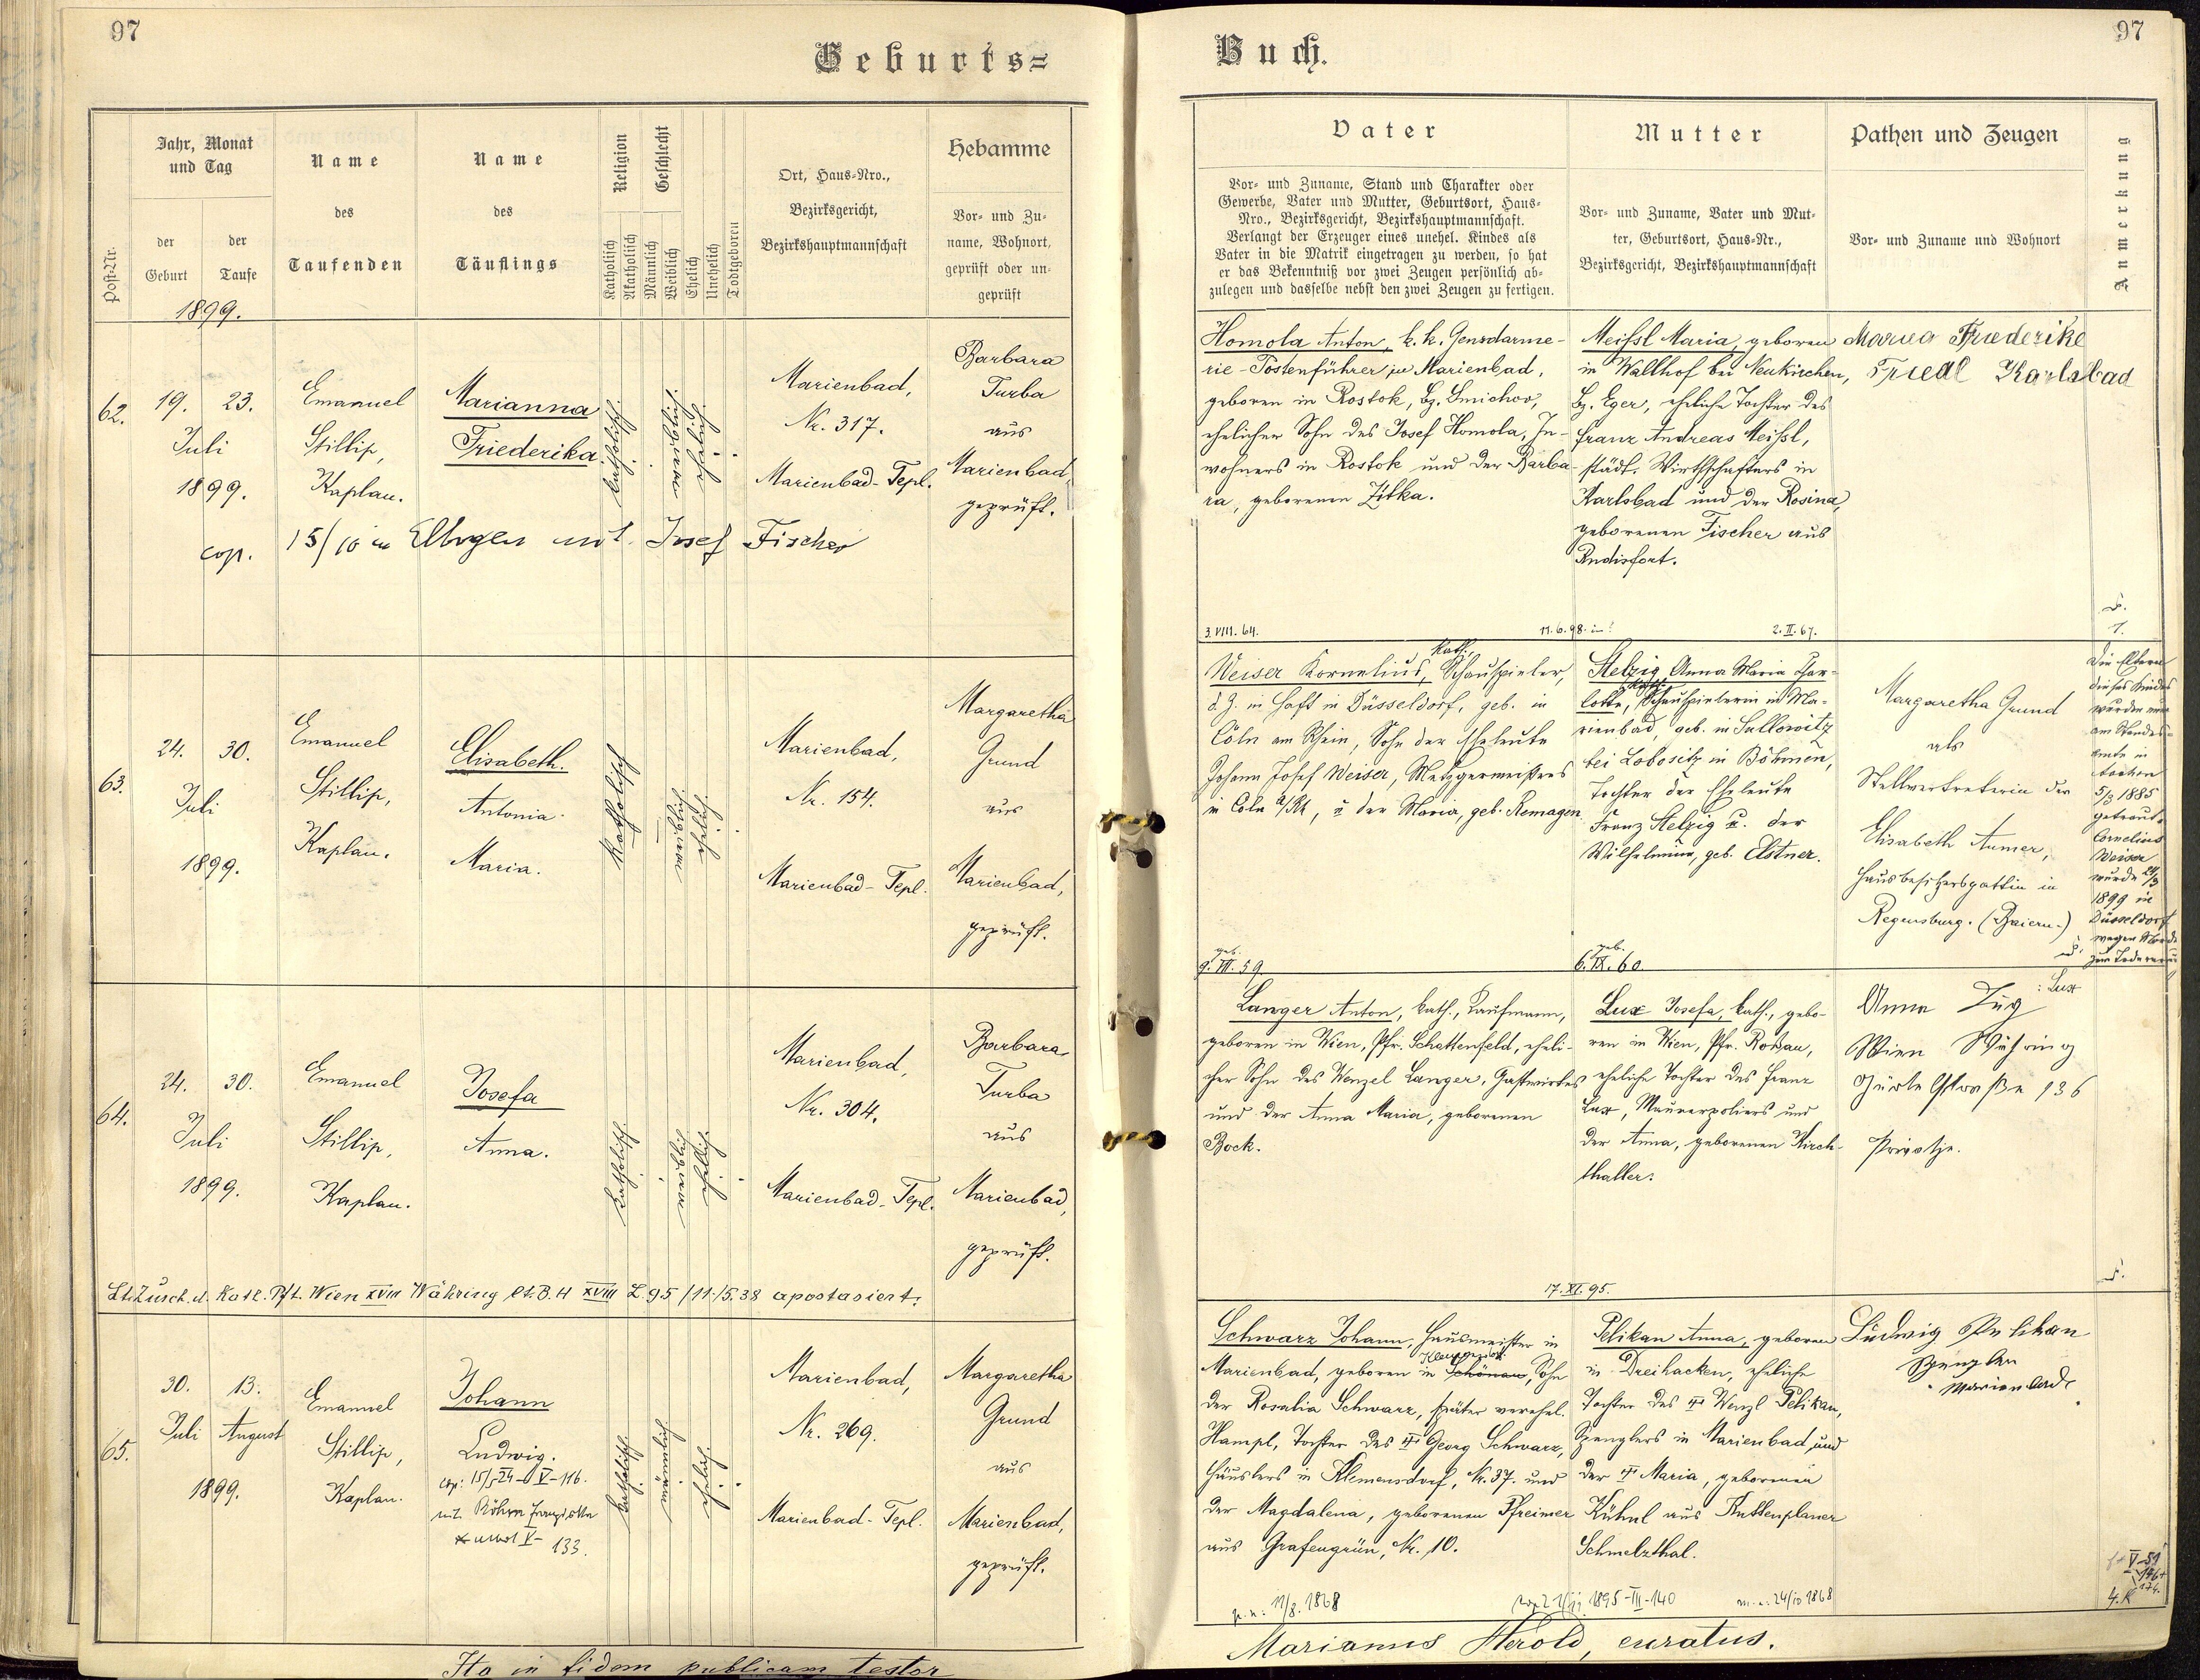 97
Geburts=
Jahr, Monat
und Tag
der
Geburt
der
Taufe
1899.
Post-Nr.
Name
des
Taufenden
Name
des
Täuflings
Religion
Katholisch
Akatholisch
Geschlecht
Männlich
Weiblich
Ehelich
Unehelich
Todtgeboren
Ort, Haus-Nro.,
Bezirksgericht,
Bezirkshauptmannschaft
Hebamme
Vor- und Zu-
name, Wohnort,
geprüft oder un-
geprüft
62.
19. 23.
Juli
1899.
Emanuel
Stillip,
Kaplan.
Marianna
Friederika
katholisch.
weiblich
ehelich.
Marienbad,
Nr. 317.
Marienbad-Tepl.
Barbara
Turba
aus
Marienbad,
geprüft.
cop. 15/10 in Elbogen mit Josef Fischer
63.
24. 30.
Juli
1899.
Emanuel
Stillip,
Kaplan.
Elisabeth.
Antonia
Maria.
katholisch
weiblich
ehelich.
Marienbad,
Nr. 154.
Marienbad-Tepl.
Margaretha
Grund
aus
Marienbad,
geprüft.
64.
24. 30.
Juli
1899.
Emanuel
Stillip,
Kaplan.
Josefa
Anna.
katholisch.
weiblich
ehelich.
Marienbad,
Nr. 304.
Marienbad-Tepl.
Barbara
Turba
aus
Marienbad,
geprüft.
Lt. Zusch. d. Kath. Pft. Wien XVIII Währing lt. B.H XVIII Z. 95/11./5.38 apostasiert.
65.
30. 13.
Juli August
1899.
Emanuel
Stillip,
Kaplan.
Johann
Ludwig.
cop: 15/5 24 V-116.
133.
katholisch.
männlich
ehelich.
Marienbad,
Nr. 269.
Marienbad-Tepl.
Margaretha
Grund
aus
Marienbad,
geprüft.
Ita in fidem publicam testor
Buch.
97
Vater
Vor- und Zuname, Stand und Charakter oder
Gewerbe, Vater und Mutter, Geburtsort, Haus-
Nro., Bezirksgericht, Bezirkshauptmannschaft.
Verlangt der Erzeuger eines unehel. Kindes als
Vater in die Matrik eingetragen zu werden, so hat
er das Bekenntniß vor zwei Zeugen persönlich ab-
zulegen und dasselbe nebst den zwei Zeugen zu fertigen.
Mutter
Vor- und Zuname, Vater und Mut-
ter, Geburtsort, Haus-Nr.,
Bezirksgericht, Bezirkshauptmannschaft
Pathen und Zeugen
Vor- und Zuname und Wohnort
Anmerkung
Homola Anton, k. k. Gensdarme-
rie-Postenführer zu Marienbad,
geboren in Rostok, Bz. Smichov,
ehelicher Sohn des Josef Homola, In-
wohners in Rostok und der Barba-
ra, geborenen Zitka.
Meißl Maria, geboren
in Wallhof bei Neukirchen,
Bz. Eger, eheliche Tochter des
Franz Andreas Meißl,
städt. Wirthschafters in
Karlsbad und der Rosina,
geborenen Fischer aus
Rudisfort.
Maria Friederike
Friedl Karlsbad
3. VIII. 64.
11. 6. 98.
2. II. 67.
Weiser Kornelius, kath., Schauspieler,
d. Z. in Haft in Düsseldorf, geb. in
Cöln am Rhein, Sohn der Eheleute
Johann Josef Weiser, Metzgermeisters
in Coln a/Rh, u der Maria, geb. Remagen
Stelzig Anna Maria Char-
lotte, kath. Schauspielerin in Ma-
rienbad, geb. in Sullowitz
bei Lobositz in Böhmen,
Tochter der Eheleute
Franz Stelzig u. der
Wilhelmine, geb. Elstner.
Margaretha Grund
als
Stellvertreterin der
Elisabeth Aumer,
Hausbesitzersgattin in
Regensburg. (Baiern.)
Die Eltern
dieses Kindes
wurden
am Standes-
amte in
Aachen
5/3 1885
getraut.
Cornelius
Weiser
wurde 24/3
1899 in
Düsseldorf
wegen Mordes
zum Tode
geb.
9. VII. 59.
geb.
6. IX. 60.
Langer Anton, kath., Kaufmann,
geboren in Wien, Pfr. Schottenfeld, eheli-
cher Sohn des Wenzel Langer, Gastwirtes
und der Anna Maria, geborenen
Bock.
Lux Josefa, kath., gebo-
ren in Wien, Pfr. Roßau,
eheliche Tochter des Franz
Lux, Maurerpoliers und
der Anna, geborenen Kirch-
thaller.
Anna Lux
: Lux
Wien Währing
Gürtelstraße 136
Private.
17. XI. 95.
Schwarz Johann, Hausmeister in
Marienbad, geboren in Schönau, Sohn
der Rosalia Schwarz, später verehel.
Hampl, Tochter des Georg Schwarz,
Häuslers in Klemensdorf, Nr. 37. und
der Magdalena, geborenen Pfreimer
aus Grafengrün, Nr. 10.
Pelikan Anna, geboren
in Dreihacken, eheliche
Tochter des Wenzl Pelikan,
Spenglers in Marienbad, und
der Maria, geborenen
Kühnl aus Kuttenplaner
Schmelzthal.
Ludwig Pelikan
Spengler
Marienbad.
11/8. 1868
1895-III-140
24/10 1868
Marianus Herold, curatus.